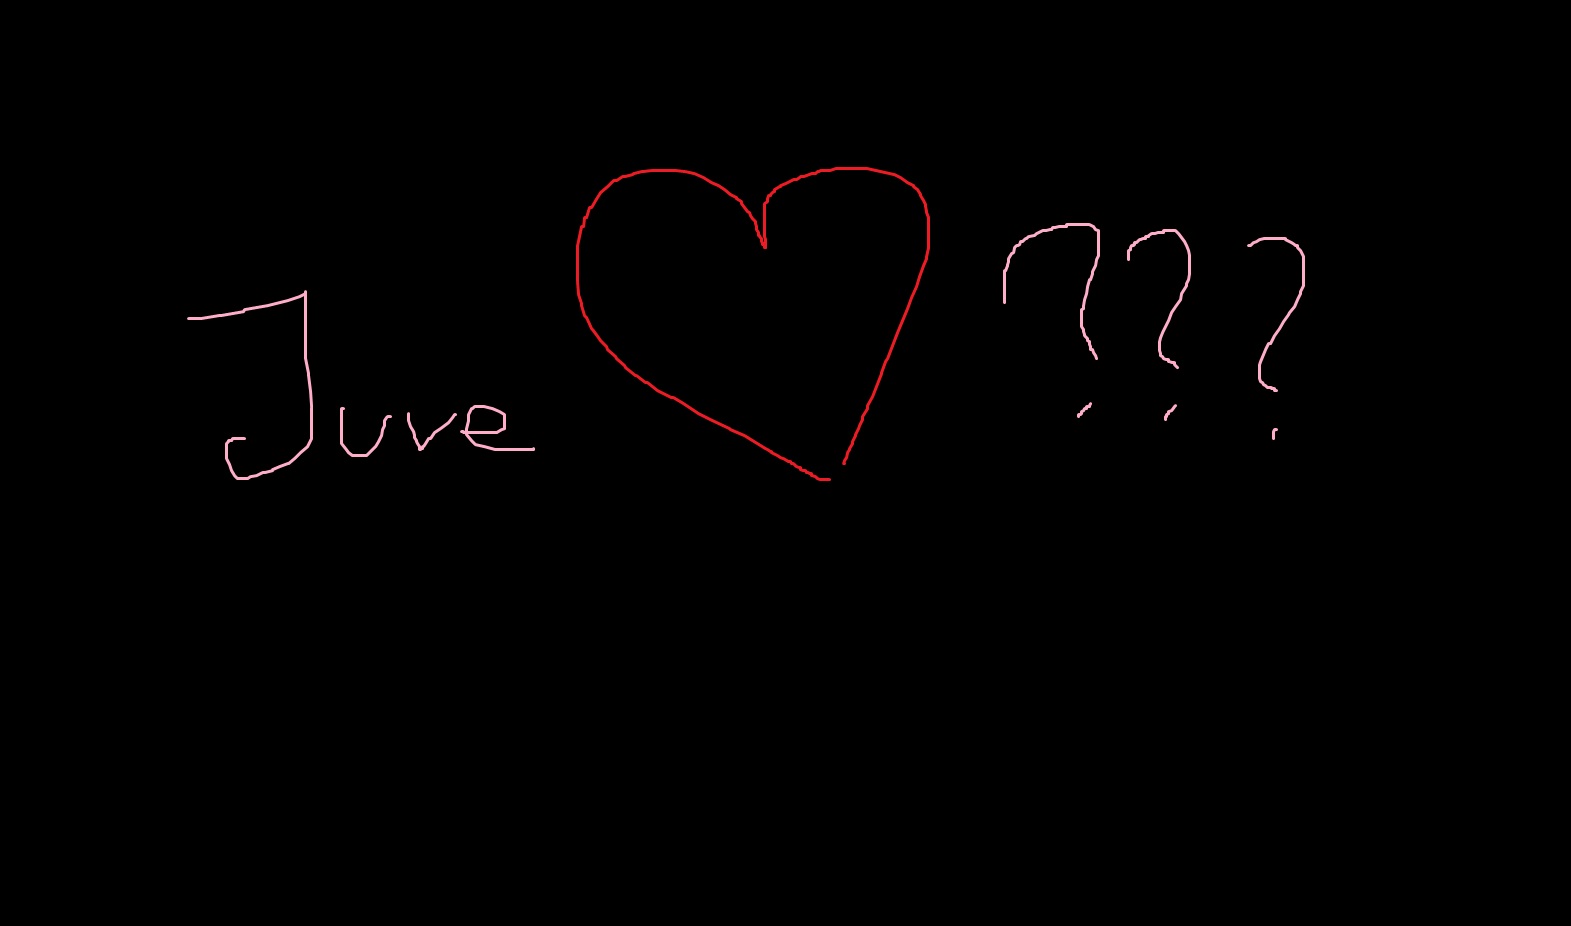 Juve ???